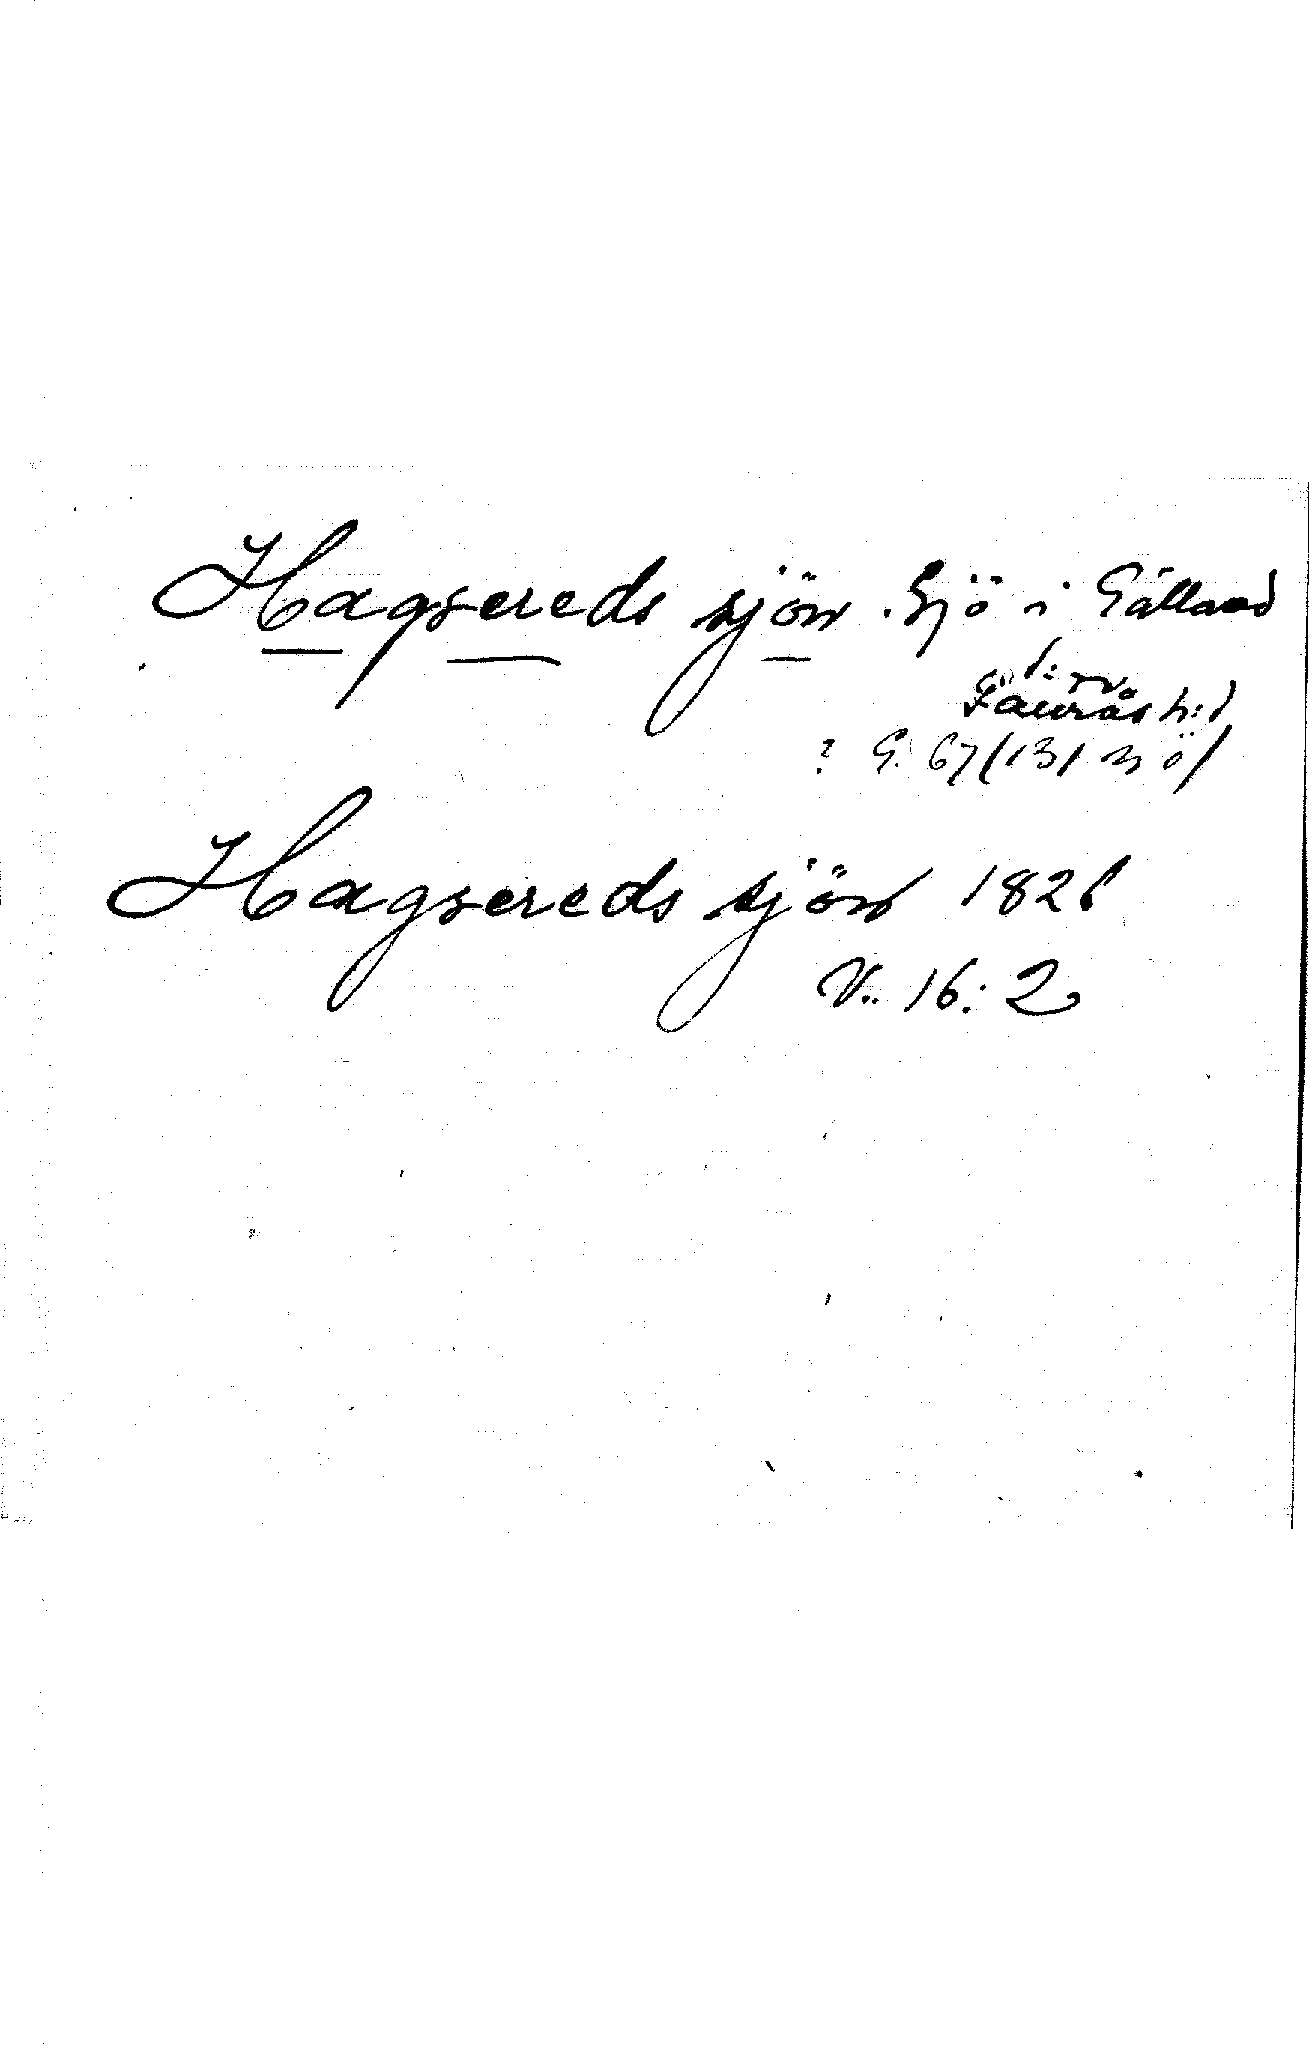 Hagsereds sjön. Sjö i Gällared
Faurås h:d
? G. 67 (131 m ö)
Hagsereds sjön 1826
V. 16: 2